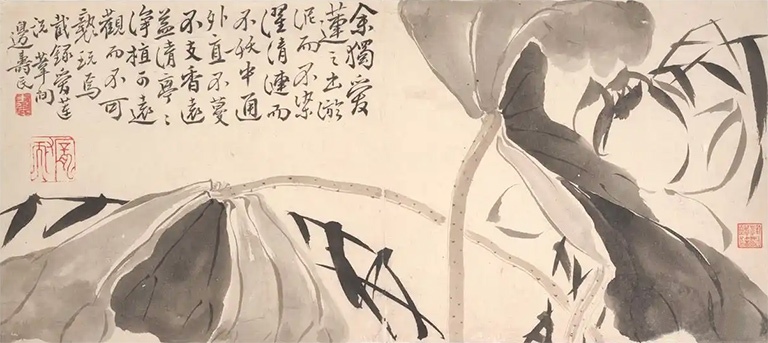 余獨愛
蓮之出淤
泥而不染
濯清漣而
不妖中通
外直不蔓
不支香遠
益清亭〻
淨植可遠
觀而不可
褻玩焉
截録愛蓮
説葦間
邊壽民